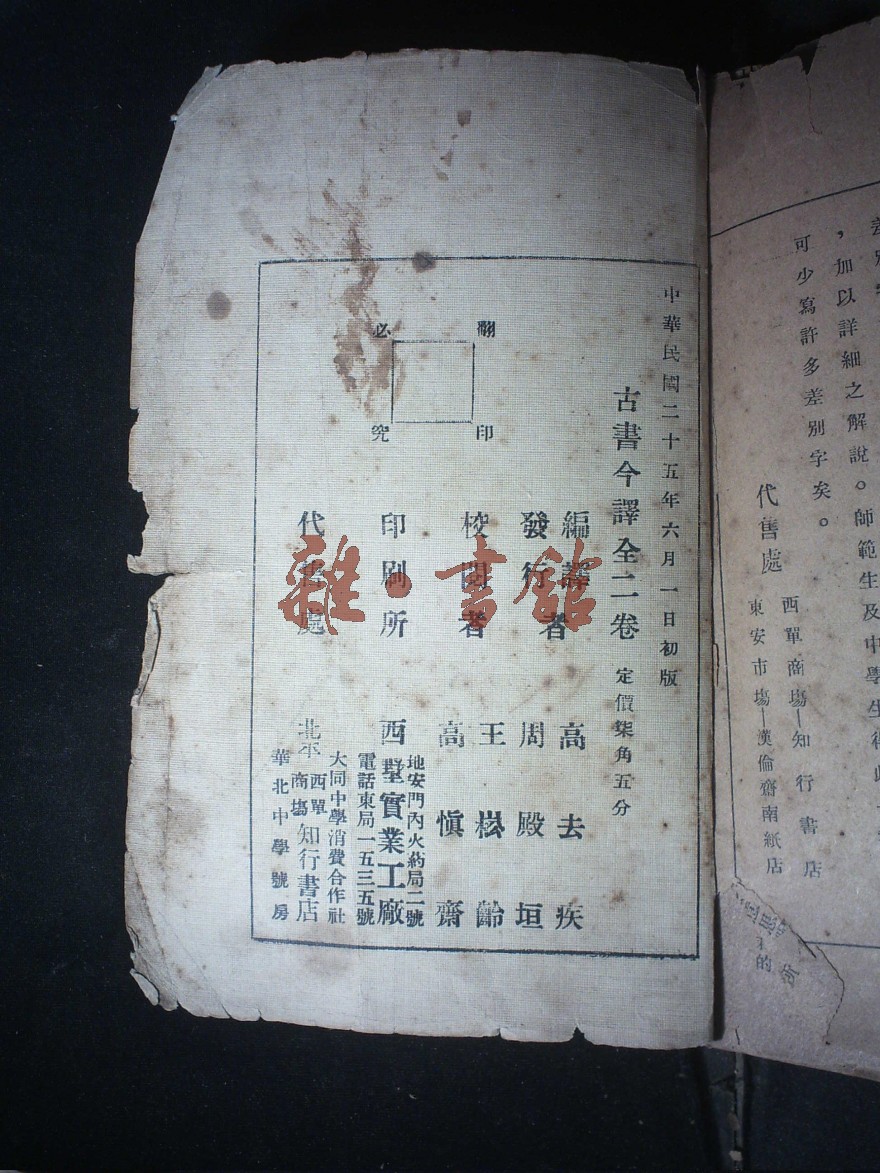 差別字
，加以詳細之解說。師範生及中學生得此
可少寫許多差別字矣。
代售處
西單商場—知行書店
東安市場—漢倫齋南紙店
的
中華民國二十五年六月一日初版
古書今譯全二卷 定價柒角五分
翻印
必究
編譯者 高去疾
發行者 周殿垣
校閱者 王崧齡
高愼齋
印刷所 西墅實業工廠
地安門內火药局二號
電話東局一五三五號
代售處 北平
大同中學消費合作社
西單商塲知行書店
華北中學號房
雜·書館